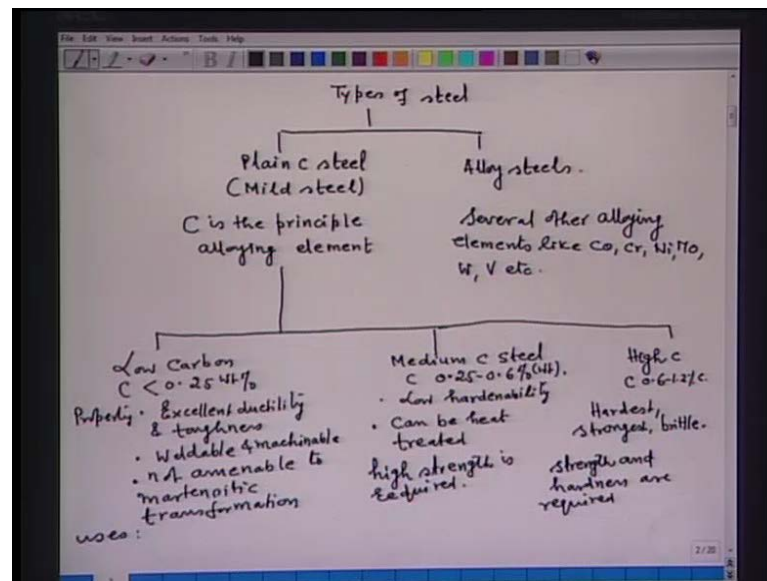 File Edit View Insert Actions Tools Help
B I
Types of steel
Plain C steel
(Mild steel)
Alloy steels.
C is the principle
alloying element
Several other alloying
elements like Co, Cr, Ni, Mo,
W, V etc.
Low Carbon
C < 0.25 wt%
Property • Excellent ductility
& toughness
• Weldable & machinable
• not amenable to
martensitic
transformation
uses :
Medium C steel
C 0.25-0.6% (wt).
• Low hardenability
• Can be heat
treated
high strength is
required.
High C
C 0.6-1.2% C.
Hardest,
strongest, brittle.
strength and
hardness are
required
2/20